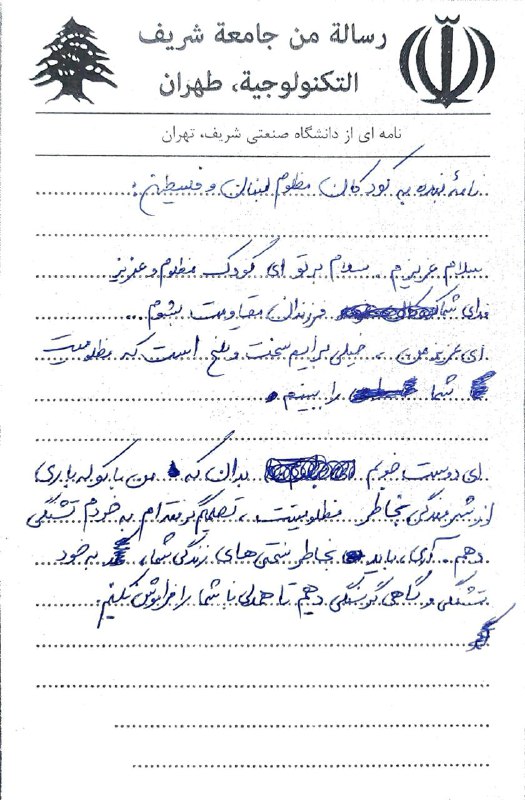 رسالة من جامعة شريف
التكنولوجية، طهران
نامه ای از دانشگاه صنعتی شریف، تهران
نامهٔ بنده به کودکان مظلوم لبنان و فلسطین:
سلام عزیزم. سلام بر تو ای کودک مظلوم و عزیز
فدای شما فرزندان مقاومت بشوم...
ای عزیز من، خیلی برایم سخت و تلخ است که مظلومیت
شما را ببینم.
ای دوست خوبم بدان که من با کوله باری
از شرمندگی بخاطر مظلومیتت، تصمیم گرفته‌ام به خودم تشنگی
دهم. آری، باید بخاطر سختی‌های زندگی شما، به خود
تشنگی و گاهی گرسنگی دهیم تا همدلی با شما را فراموش نکنیم.